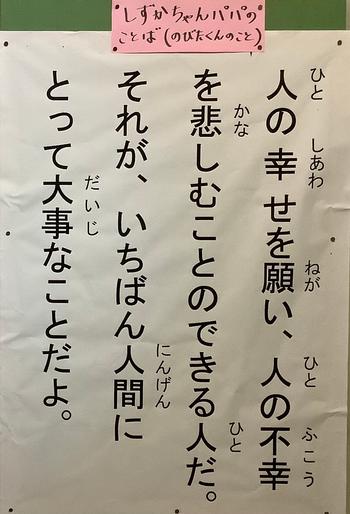 しずかちゃんパパの
ことば(のびたくんのこと)
人の幸せを願い、人の不幸
を悲しむことのできる人だ。
それが、いちばん人間に
とって大事なことだよ。
ひと
しあわ
ねが
ひと
ふこう
かな
ひと
にんげん
だいじ